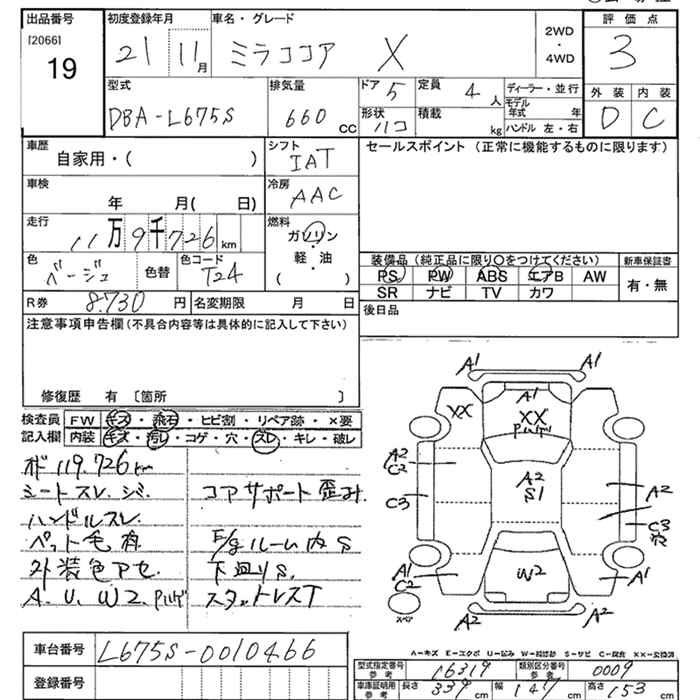 出品番号 初度登録年月 車名・グレード 2WD・4WD 評価点
[2066] 19 21 11月 ミラココア X 3
型式 排気量 ドア 5 定員 4人 ディーラー・並行 外装 内装
DBA-L675S 660cc 形状 ハコ 積載 kg モデル年式 年 D C
ハンドル 左・右
車歴 シフト セールスポイント (正常に機能するものに限ります)
自家用・( ) IAT
車検 冷房
年 月( 日) AAC
走行 燃料
11万9千726km ガソリン
軽・油
( )
色 色替 色コード 装備品(純正品に限り○をつけてください) 新車保証書
ベージュ T24 PS PW ABS エアB AW 有・無
SR ナビ TV カワ
R券 8.730円 名変期限 月 日 後日品
注意事項申告欄(不具合内容等は具体的に記入して下さい)
修復歴 有 〔箇所 〕
検査員 FW キズ・飛石・ヒビ割・リペア跡・×要
記入欄 内装 キズ・汚レ・コゲ・穴・スレ・キレ・破レ
オド 119.726km
シートスレ.シミ. コアサポート歪み.
ハンドルスレ.
ペット毛有 F/gルーム内S
外装色アセ. 下廻りS.
A.U.W2.Pハゲ スタットレスT
A1 A1
A1
XX XX
Pハゲ
A2 C2 A2 S1
C3 A2
C3
A1 C2 W2 A1
スペア A2 A2
A=キズ E=エクボ U=凹み W=補修跡 S=サビ C=腐食 XX=交換済
車台番号 L675S-0010466
登録番号
型式指定番号 参考 16319 類別区分番号 参考 0009
車庫証明用 参考 長さ 339cm 幅 147cm 高さ 153cm